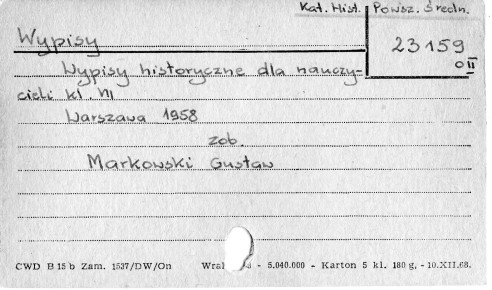 Kat. Hist. Powsz. Średn.
Wypisy
23159
0 II
Wypisy historyczne dla nauczy-
cieli kl. VII
Warszawa 1958
zob.
Markowski Gustaw
CWD B 15 b Zam. 1537/DW/On - 5.040.000 - Karton 5 kl. 180 g, - 10.XII.68.